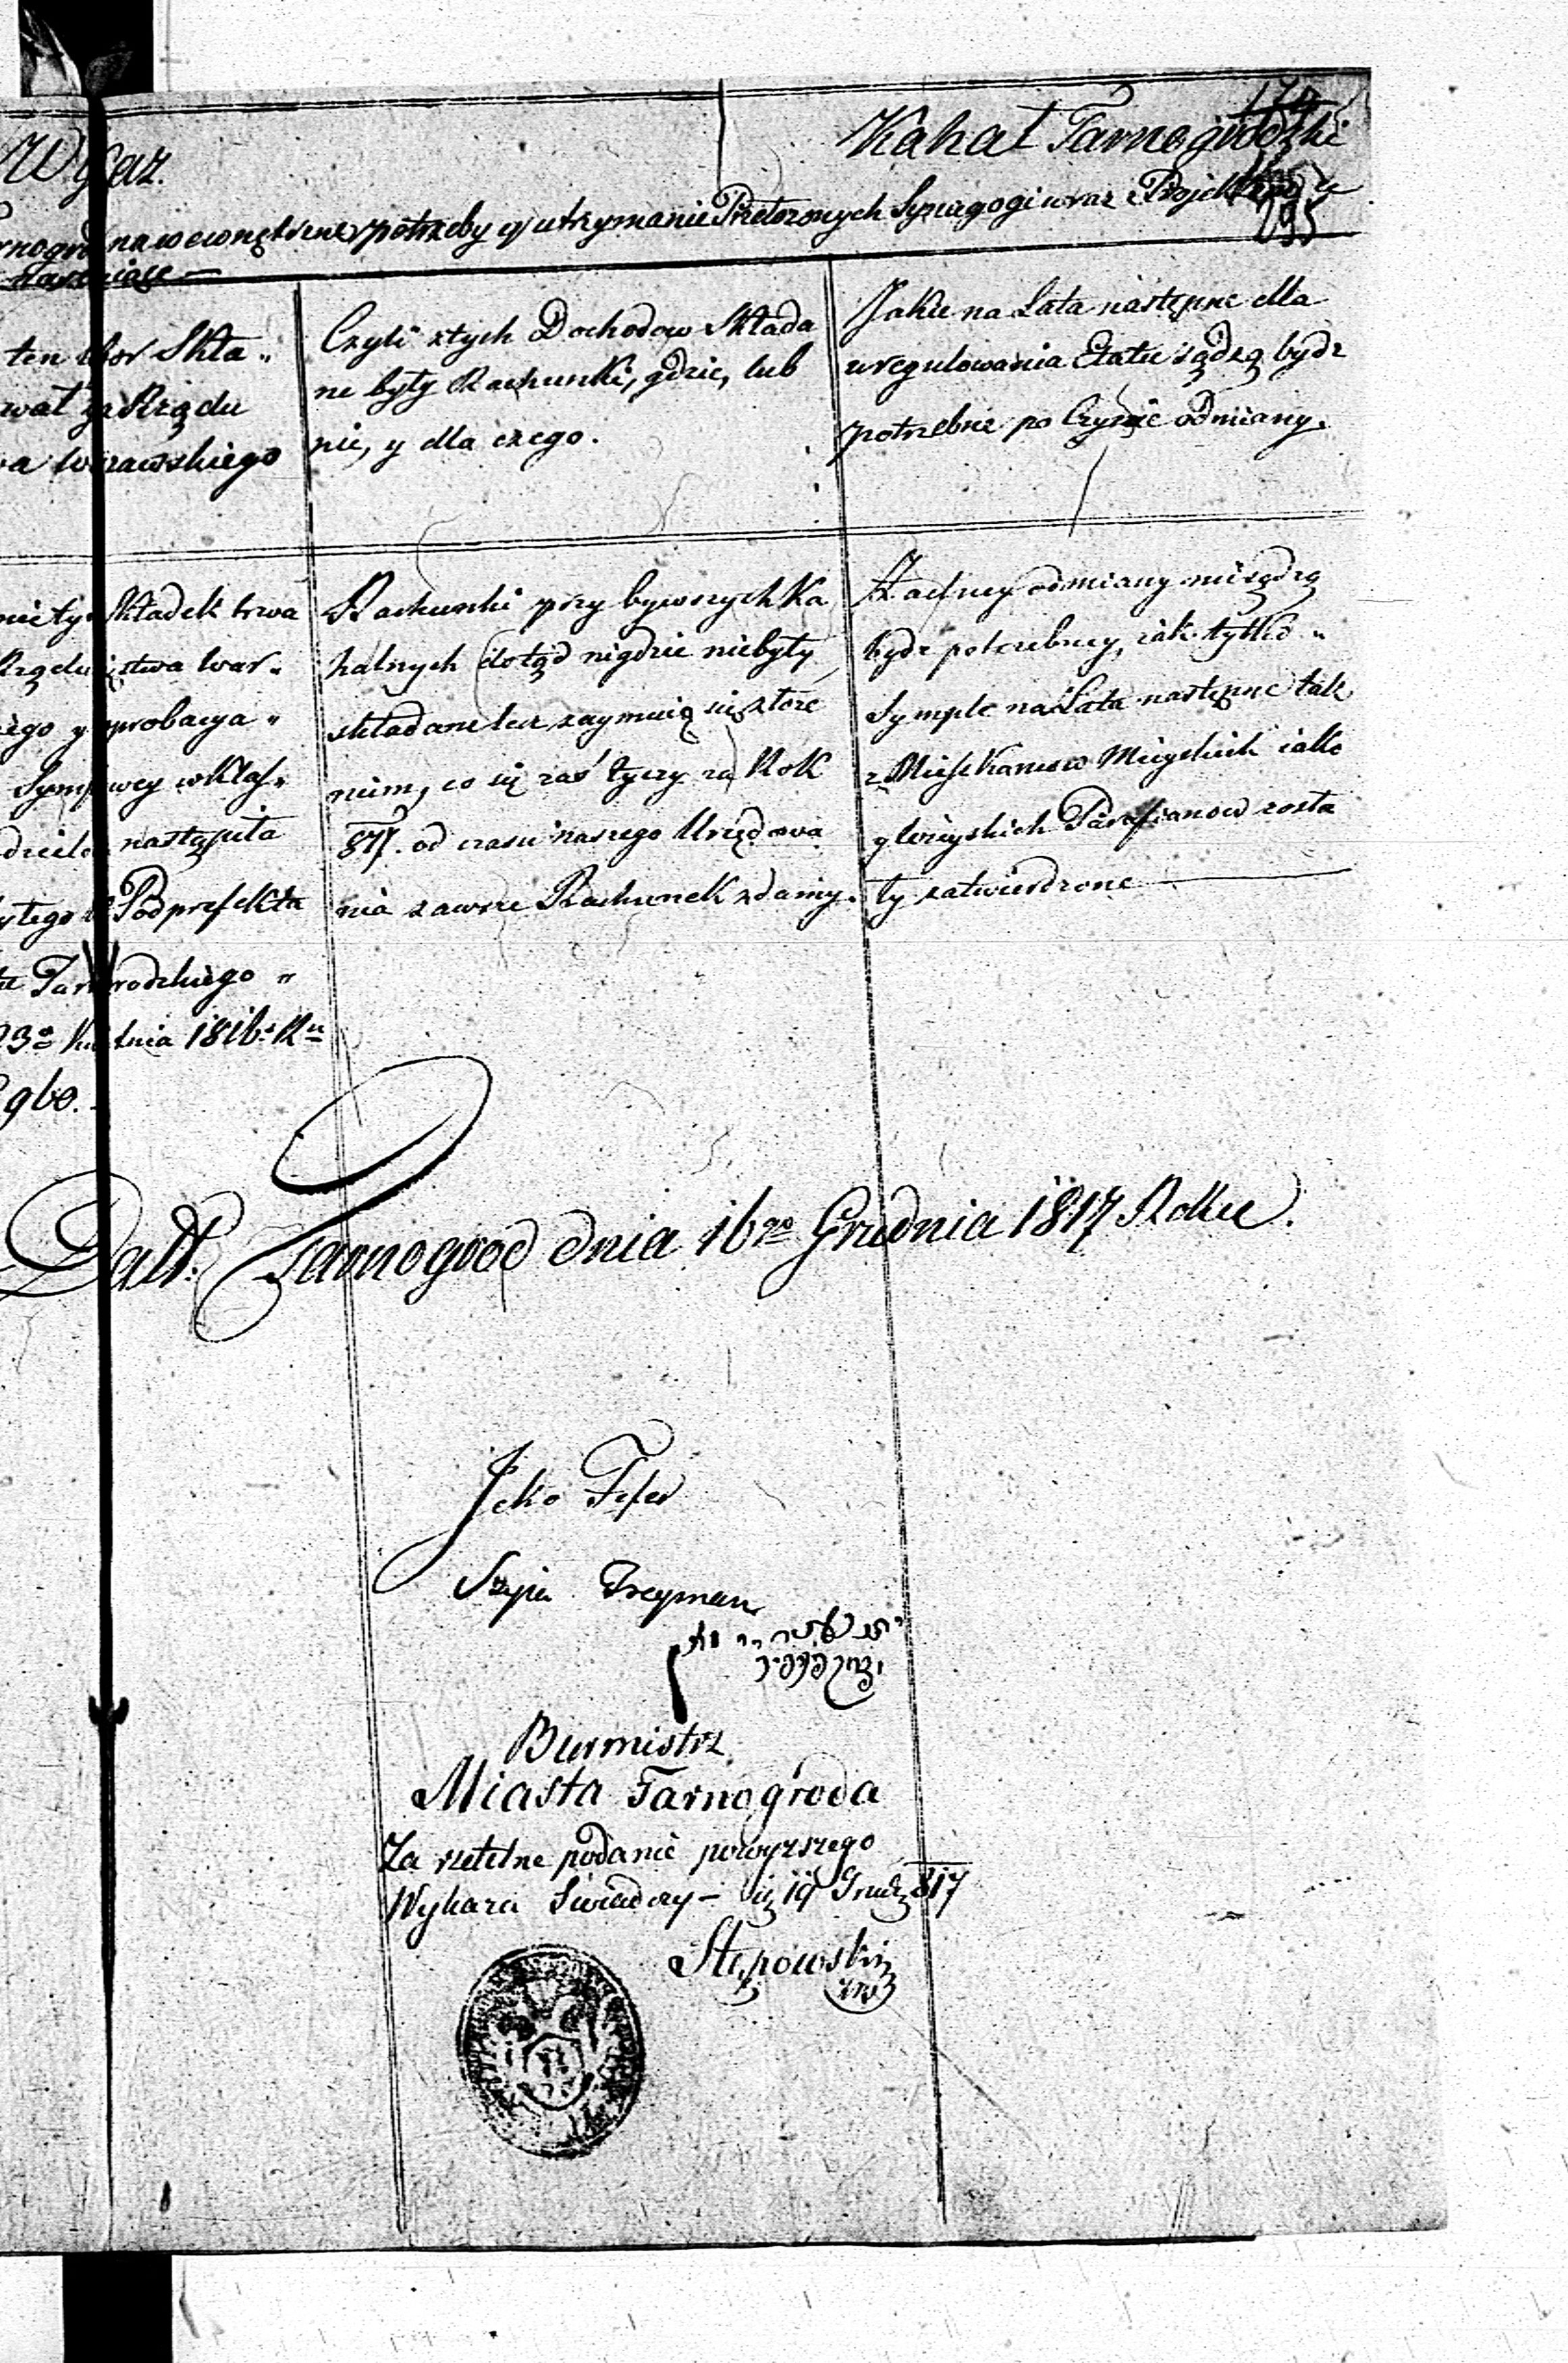 Kahał Tarnogrodzki
Wykaz.
na wewnętrzne potrzeby y utrzymanie Przełożonych Synagogi wraz z Projektem
295
ten Skła„
wał za Rządu
Warszawskiego
Czyli z tych Dochodow Składa
ne były Rachunki, gdzie, lub
nie, y dla czego.
Jakie na Lata następne dla
uregulowania Etatu sądzą bydz
potrzebne po Czynie odmiany.
Składek trwa
Rządu War„
probacya„
wkłas„
nastąpiła
Podprefekta
Tarnogrodzkiego„
23º 1816º Rº
960.
Rachunki przy bywszych Ka
halnych dotąd nigdzie niebyły
składane lecz zaymuią się złoże
niem, co się zaś tyczy za Rok
817. od czasu naszego Urzędowa
nia zawsze Rachunek zdamy.
Żadney odmiany niesądzą
bydz potrzebney, iak tylko„
Symple na Lata następne tak
z Mieszkancow Mieyskich iako
y Wieyskich Parafianow zosta
ły zatwierdzone
Datt: Tarnogrod dnia 16go Grudnia 1817 Roku.
Jcko Fefer
Szyia Freyman
Burmistrz
Miasta Tarnogroda
Za rzetelne podanie powyzszego
Wykazu Swiadczy – 19 Grud 817
Stępowski